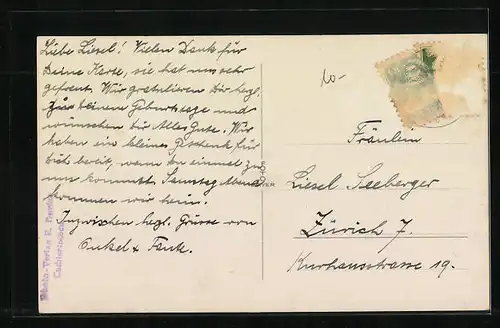 Liebe Liesel! Vielen Dank für
Deine Karte, sie hat uns sehr
gefreut. Wir gratulieren Dir herzl.
zu Deinem Geburtstage und
wünschen dir Alles Gute. Wir
haben ein kleines Geschenk für
Dich bereit, wenn du einmal zu
uns kommst. Samstag Abend
kommen wir heim.
Inzwischen herzl. Grüsse von
Onkel & Tante.
10-
Fräulein
Liesel Seeberger
Zürich 7.
Kurhausstrasse 19.